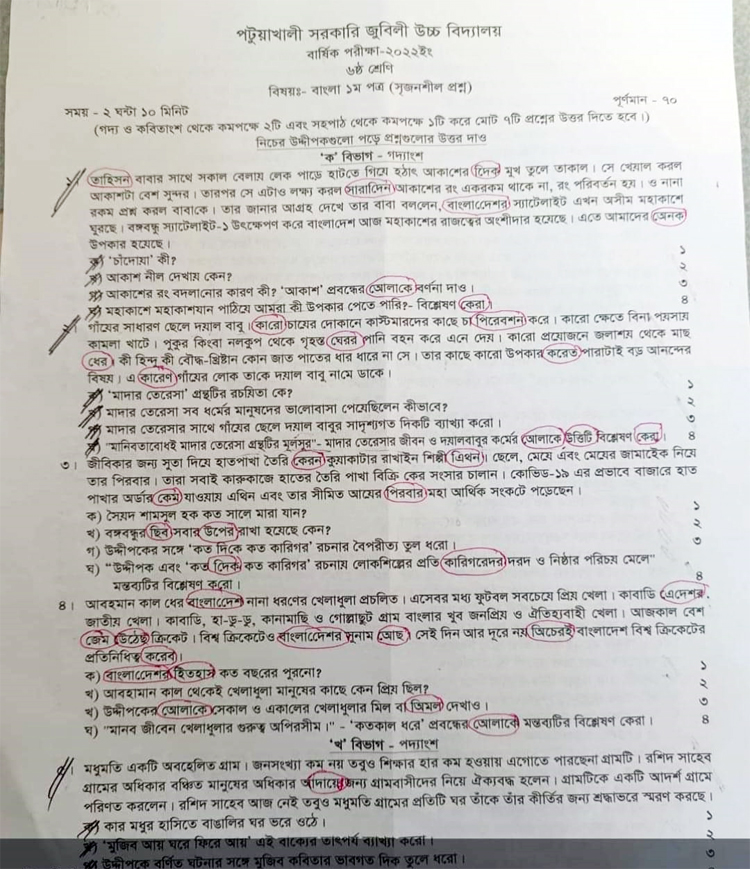 পটুয়াখালী সরকারি জুবিলী উচ্চ বিদ্যালয়
বার্ষিক পরীক্ষা-২০২২ইং
৬ষ্ঠ শ্রেণি
বিষয়ঃ- বাংলা ১ম পত্র (সৃজনশীল প্রশ্ন)
সময় - ২ ঘন্টা ১০ মিনিট পূর্ণমান - ৭০
(গদ্য ও কবিতাংশ থেকে কমপক্ষে ২টি এবং সহপাঠ থেকে কমপক্ষে ১টি করে মোট ৭টি প্রশ্নের উত্তর দিতে হবে।)
নিচের উদ্দীপকগুলো পড়ে প্রশ্নগুলোর উত্তর দাও
'ক' বিভাগ - গদ্যাংশ
১। তাহিসন বাবার সাথে সকাল বেলায় লেক পাড়ে হাটতে গিয়ে হঠাৎ আকাশের দিেক মুখ তুলে তাকাল। সে খেয়াল করল
আকাশটা বেশ সুন্দর। তারপর সে এটাও লক্ষ্য করল সারাদিেন আকাশের রং একরকম থাকে না, রং পরিবর্তন হয়। ও নানা
রকম প্রশ্ন করল বাবাকে। তার জানার আগ্রহ দেখে তার বাবা বললেন, বাংলােদেশর স্যাটেলাইট এখন অসীম মহাকাশে
ঘুরছে। বঙ্গবন্ধু স্যাটেলাইট-১ উৎক্ষেপণ করে বাংলাদেশ আজ মহাকাশের রাজত্বের অংশীদার হয়েছে। এতে আমাদের অেনক
উপকার হয়েছে।
ক) 'চাঁদোয়া' কী? ১
খ) আকাশ নীল দেখায় কেন? ২
গ) আকাশের রং বদলানোর কারণ কী? 'আকাশ' প্রবন্ধের আেলােকে বর্ণনা দাও। ৩
ঘ) মহাকাশে মহাকাশযান পাঠিয়ে আমরা কী উপকার পেতে পারি?- বিশ্লেষণ কেরা। ৪
২। গাঁয়ের সাধারণ ছেলে দয়াল বাবু। কােরা চায়ের দোকানে কাস্টমারদের কাছে চা পিরেবশন করে। কারো ক্ষেতে বিনা পয়সায়
কামলা খাটে। পুকুর কিংবা নলকুপ থেকে গৃহস্ত ঘেরর পানি বহন করে এনে দেয়। কারো প্রয়োজনে জলাশয় থেকে মাছ
ধের। কী হিন্দু কী বৌদ্ধ-খ্রিষ্টান কোন জাত পাতের ধার ধারে না সে। তার কাছে কারো উপকার করেত পারাটাই বড় আনন্দের
বিষয়। এ কারেণ গাঁয়ের লোক তাকে দয়াল বাবু নামে ডাকে।
ক) 'মাদার তেরেসা' গ্রন্থটির রচয়িতা কে? ১
খ) মাদার তেরেসা সব ধর্মের মানুষদের ভালোবাসা পেয়েছিলেন কীভাবে? ২
গ) মাদার তেরেসার সাথে গাঁয়ের ছেলে দয়াল বাবুর সাদৃশ্যগত দিকটি ব্যাখ্যা করো। ৩
ঘ) "মানিবতাবোধই মাদার তেরেসা গ্রন্থটির মূলসুর"- মাদার তেরেসার জীবন ও দয়ালবাবুর কর্মের আেলােক উত্তিটি বিশ্লেষণ কেরা। ৪
৩। জীবিকার জন্য সুতা দিয়ে হাতপাখা তৈরি করেন কুয়াকাটার রাখাইন শিল্পী এিথন। ছেলে, মেয়ে এবং মেয়ের জামাইকে নিয়ে
তার পিরবার। তারা সবাই কারুকাজে হাতের তৈরি পাখা বিক্রি কের সংসার চালান। কোভিড-১৯ এর প্রভাবে বাজারে হাত
পাখার অর্ডার কেম যাওয়ায় এথিন এবং তার সীমিত আয়ের পিরবার মহা আর্থিক সংকটে পড়েছেন।
ক) সৈয়দ শামসুল হক কত সালে মারা যান? ১
খ) বঙ্গবন্ধুর ছিব সবার উপের রাখা হয়েছে কেন? ২
গ) উদ্দীপকের সঙ্গে 'কত দিকে কত কারিগর' রচনার বৈপরীত্য তুল ধরো। ৩
ঘ) "উদ্দীপক এবং 'কত দিেক কত কারিগর' রচনায় লোকশিল্পের প্রতি কারিগরেদর দরদ ও নিষ্ঠার পরিচয় মেলে"
মন্তব্যটির বিশ্লেষণ করো। ৪
৪। আবহমান কাল ধের বাংলােদেশ নানা ধরণের খেলাধুলা প্রচলিত। এসেবর মধ্য ফুটবল সবচেয়ে প্রিয় খেলা। কাবাডি এেদেশর
জাতীয় খেলা। কাবাডি, হা-ডু-ডু, কানামাছি ও গোল্লাছুট গ্রাম বাংলার খুব জনপ্রিয় ও ঐতিহ্যবাহী খেলা। আজকাল বেশ
জেম উঠেছ ক্রিকেট। বিশ্ব ক্রিকেটেও বাংলােদেশর সুনাম আেছ। সেই দিন আর দূরে নয় অিচেরই বাংলাদেশ বিশ্ব ক্রিকেটের
প্রতিনিধিত্ব করেব।
ক) বাংলােদেশর ইিতহাস কত বছরের পুরনো? ১
খ) আবাহমান কাল থেকেই খেলাধুলা মানুষের কাছে কেন প্রিয় ছিল? ২
খ) উদ্দীপকের আেলােকে সেকাল ও একালের খেলাধুলার মিল বা অিমল দেখাও। ৩
ঘ) "মানব জীবেন খেলাধুলার গুরুত্ব অপিরসীম।" - 'কতকাল ধরে' প্রবন্ধের আেলােকে মন্তব্যটির বিশ্লেষণ কেরা। ৪
'খ' বিভাগ - পদ্যাংশ
৫। মধুমতি একটি অবহেলিত গ্রাম। জনসংখ্যা কম নয় তবুও শিক্ষার হার কম হওয়ায় এগোতে পারছেনা গ্রামটি। রশিদ সাহেব
গ্রামের অধিকার বঞ্চিত মানুষের অধিকার আদায়ের জন্য গ্রামবাসীদের নিয়ে ঐক্যবদ্ধ হলেন। গ্রামটিকে একটি আদর্শ গ্রামে
পরিণত করলেন। রশিদ সাহেব আজ নেই তবুও মধুমতি গ্রামের প্রতিটি ঘর তাঁকে তাঁর কীর্তির জন্য শ্রদ্ধাভরে স্মরণ করছে।
ক) কার মধুর হাসিতে বাঙালির ঘর ভরে ওঠে। ১
খ) 'মুজিব আয় ঘরে ফিরে আয়' এই বাক্যের তাৎপর্য ব্যাখ্যা করো। ২
গ) উদ্দীপকে বর্ণিত ঘটনার সঙ্গে মুজিব কবিতার ভাবগত দিক তুলে ধরো। ৩